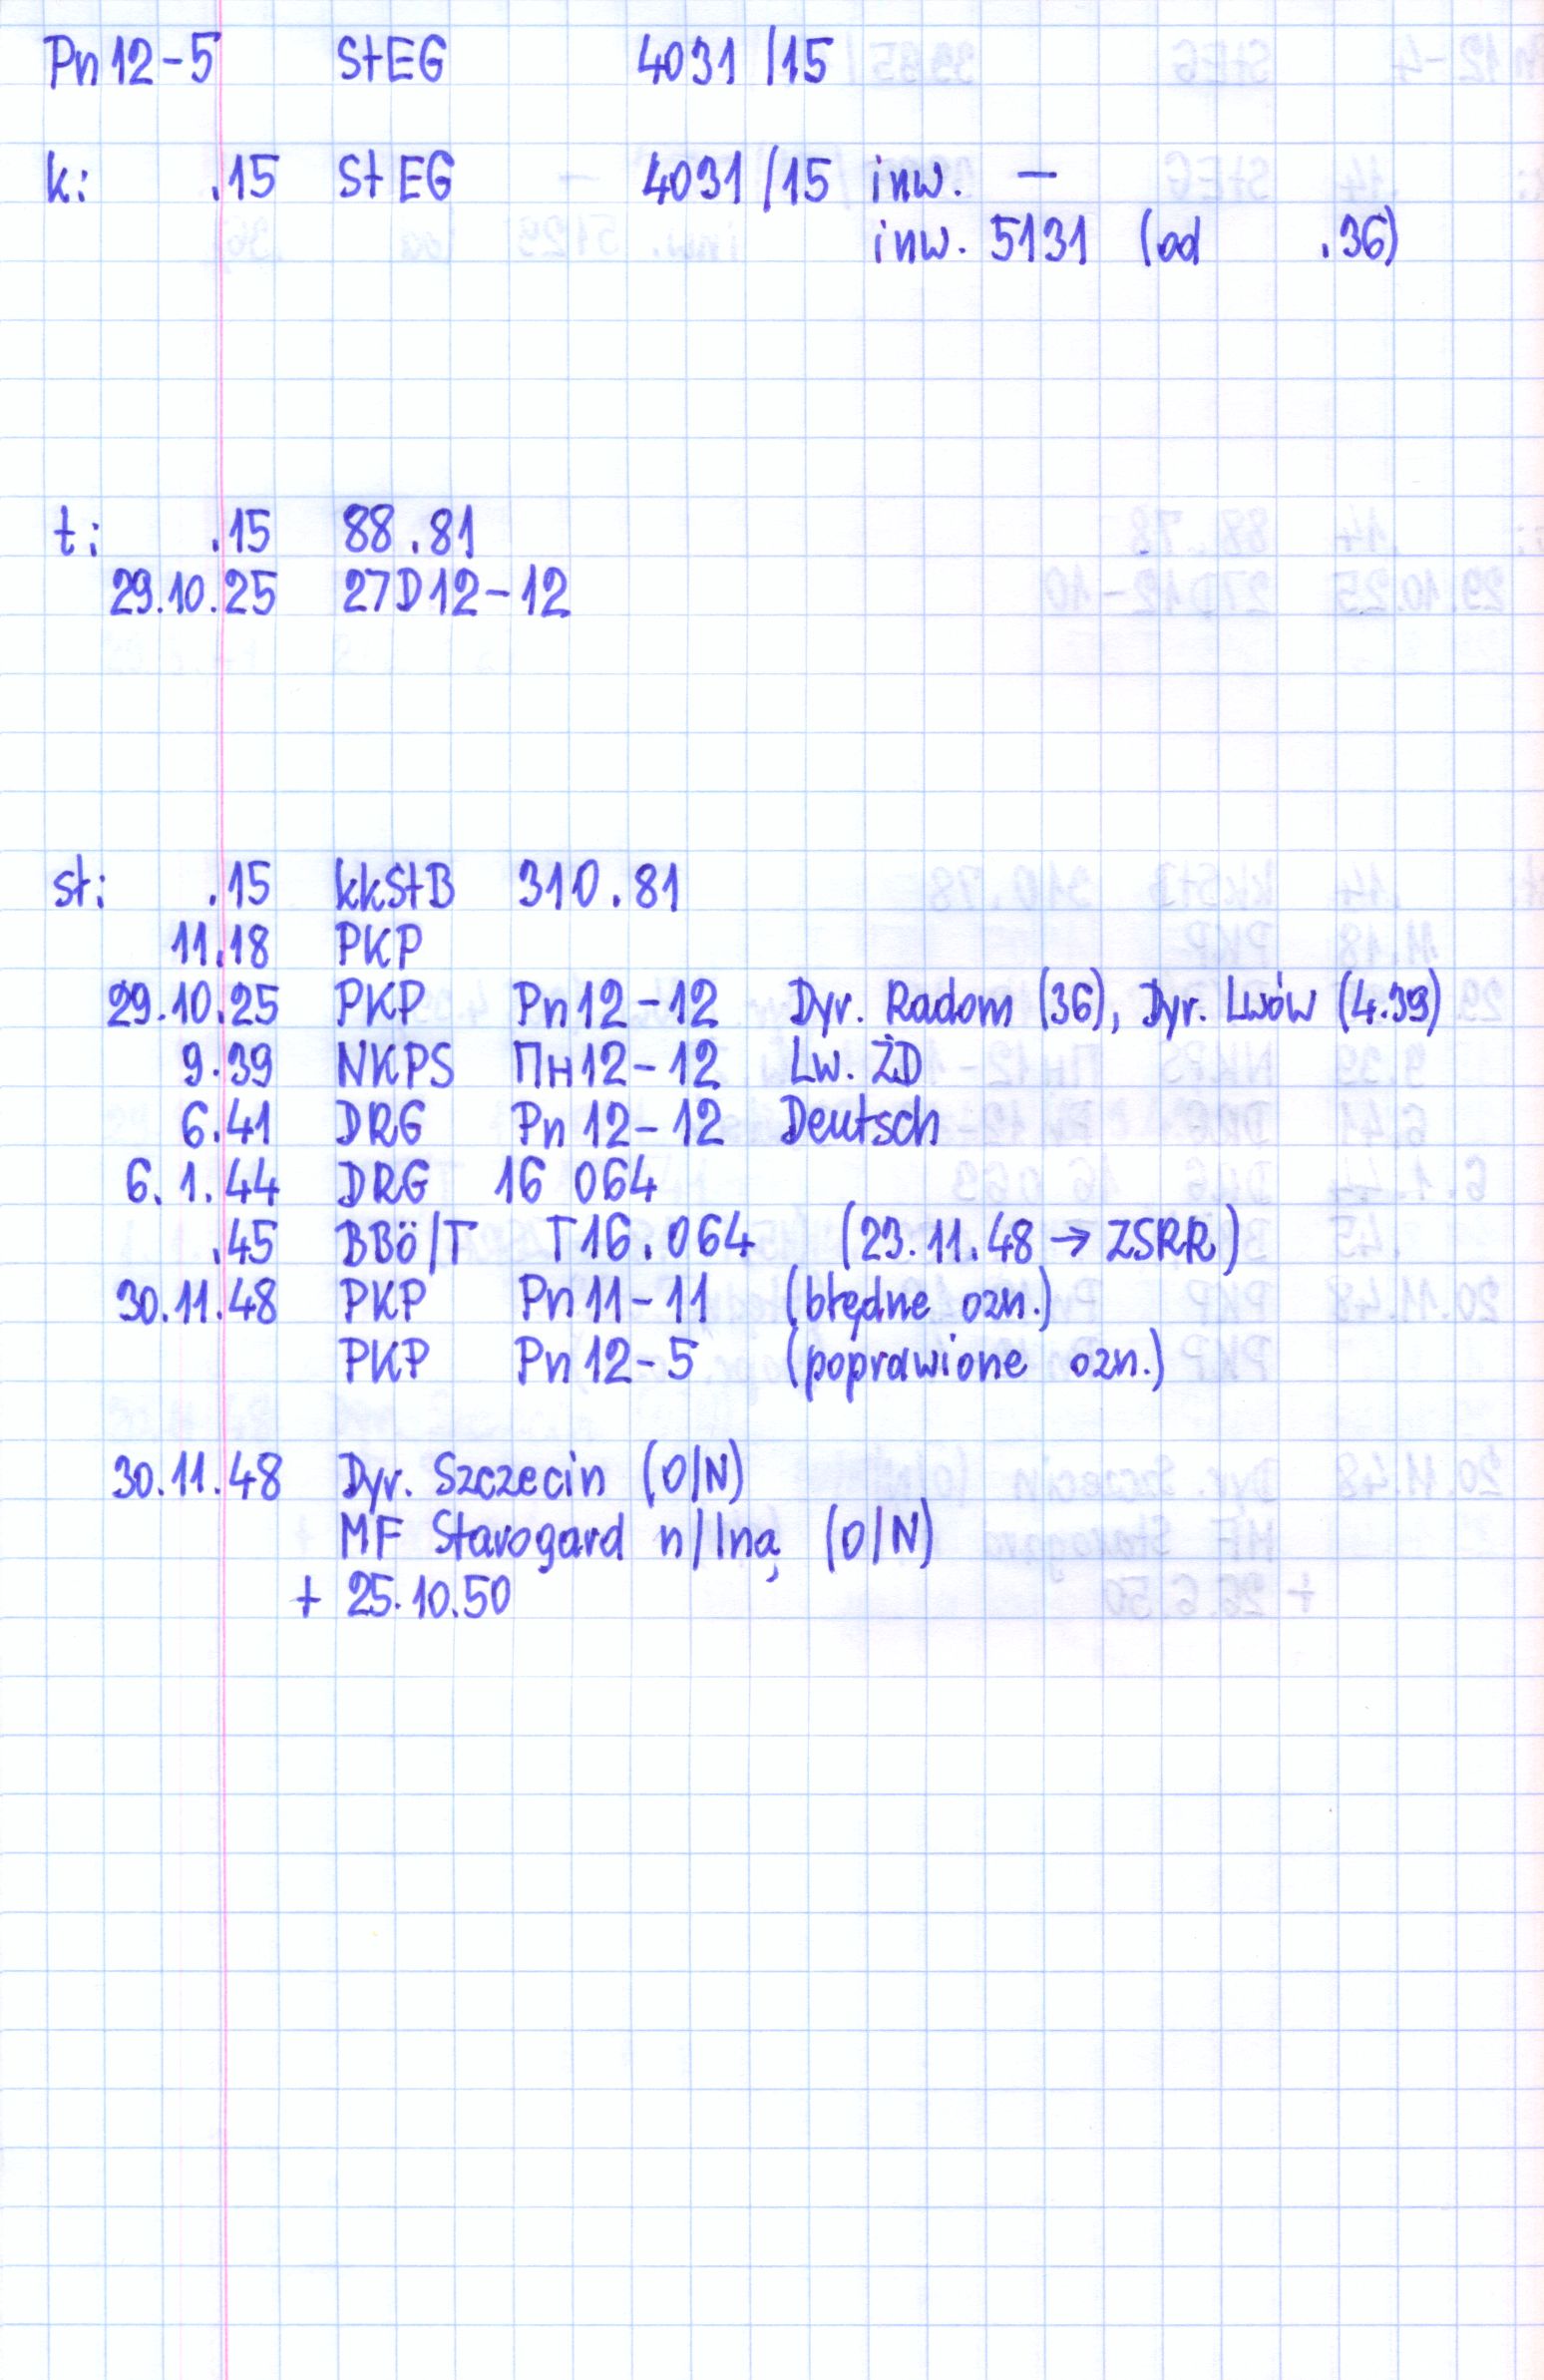 Pn12-5 StEG 4031/15
k: .15 StEG 4031/15 inw. —
inw. 5131 (od .36)
t: .15 88.81
29.10.25 27D12-12
st: .15 kkStB 310.81
11.18 PKP
29.10.25 PKP Pn12-12 Dyr. Radom (36), Dyr. Lwów (4.39)
9.39 NKPS Пн12-12 Lw. ŻD
6.41 DRG Pn12-12 Deutsch
6.1.44 DRG 16 064
.45 BBö/T T16.064 (23.11.48 → ZSRR)
30.11.48 PKP Pn11-11 (błędne ozn.)
PKP Pn12-5 (poprawione ozn.)
30.11.48 Dyr. Szczecin (O/N)
MF Starogard n/Iną (O/N)
+ 25.10.50